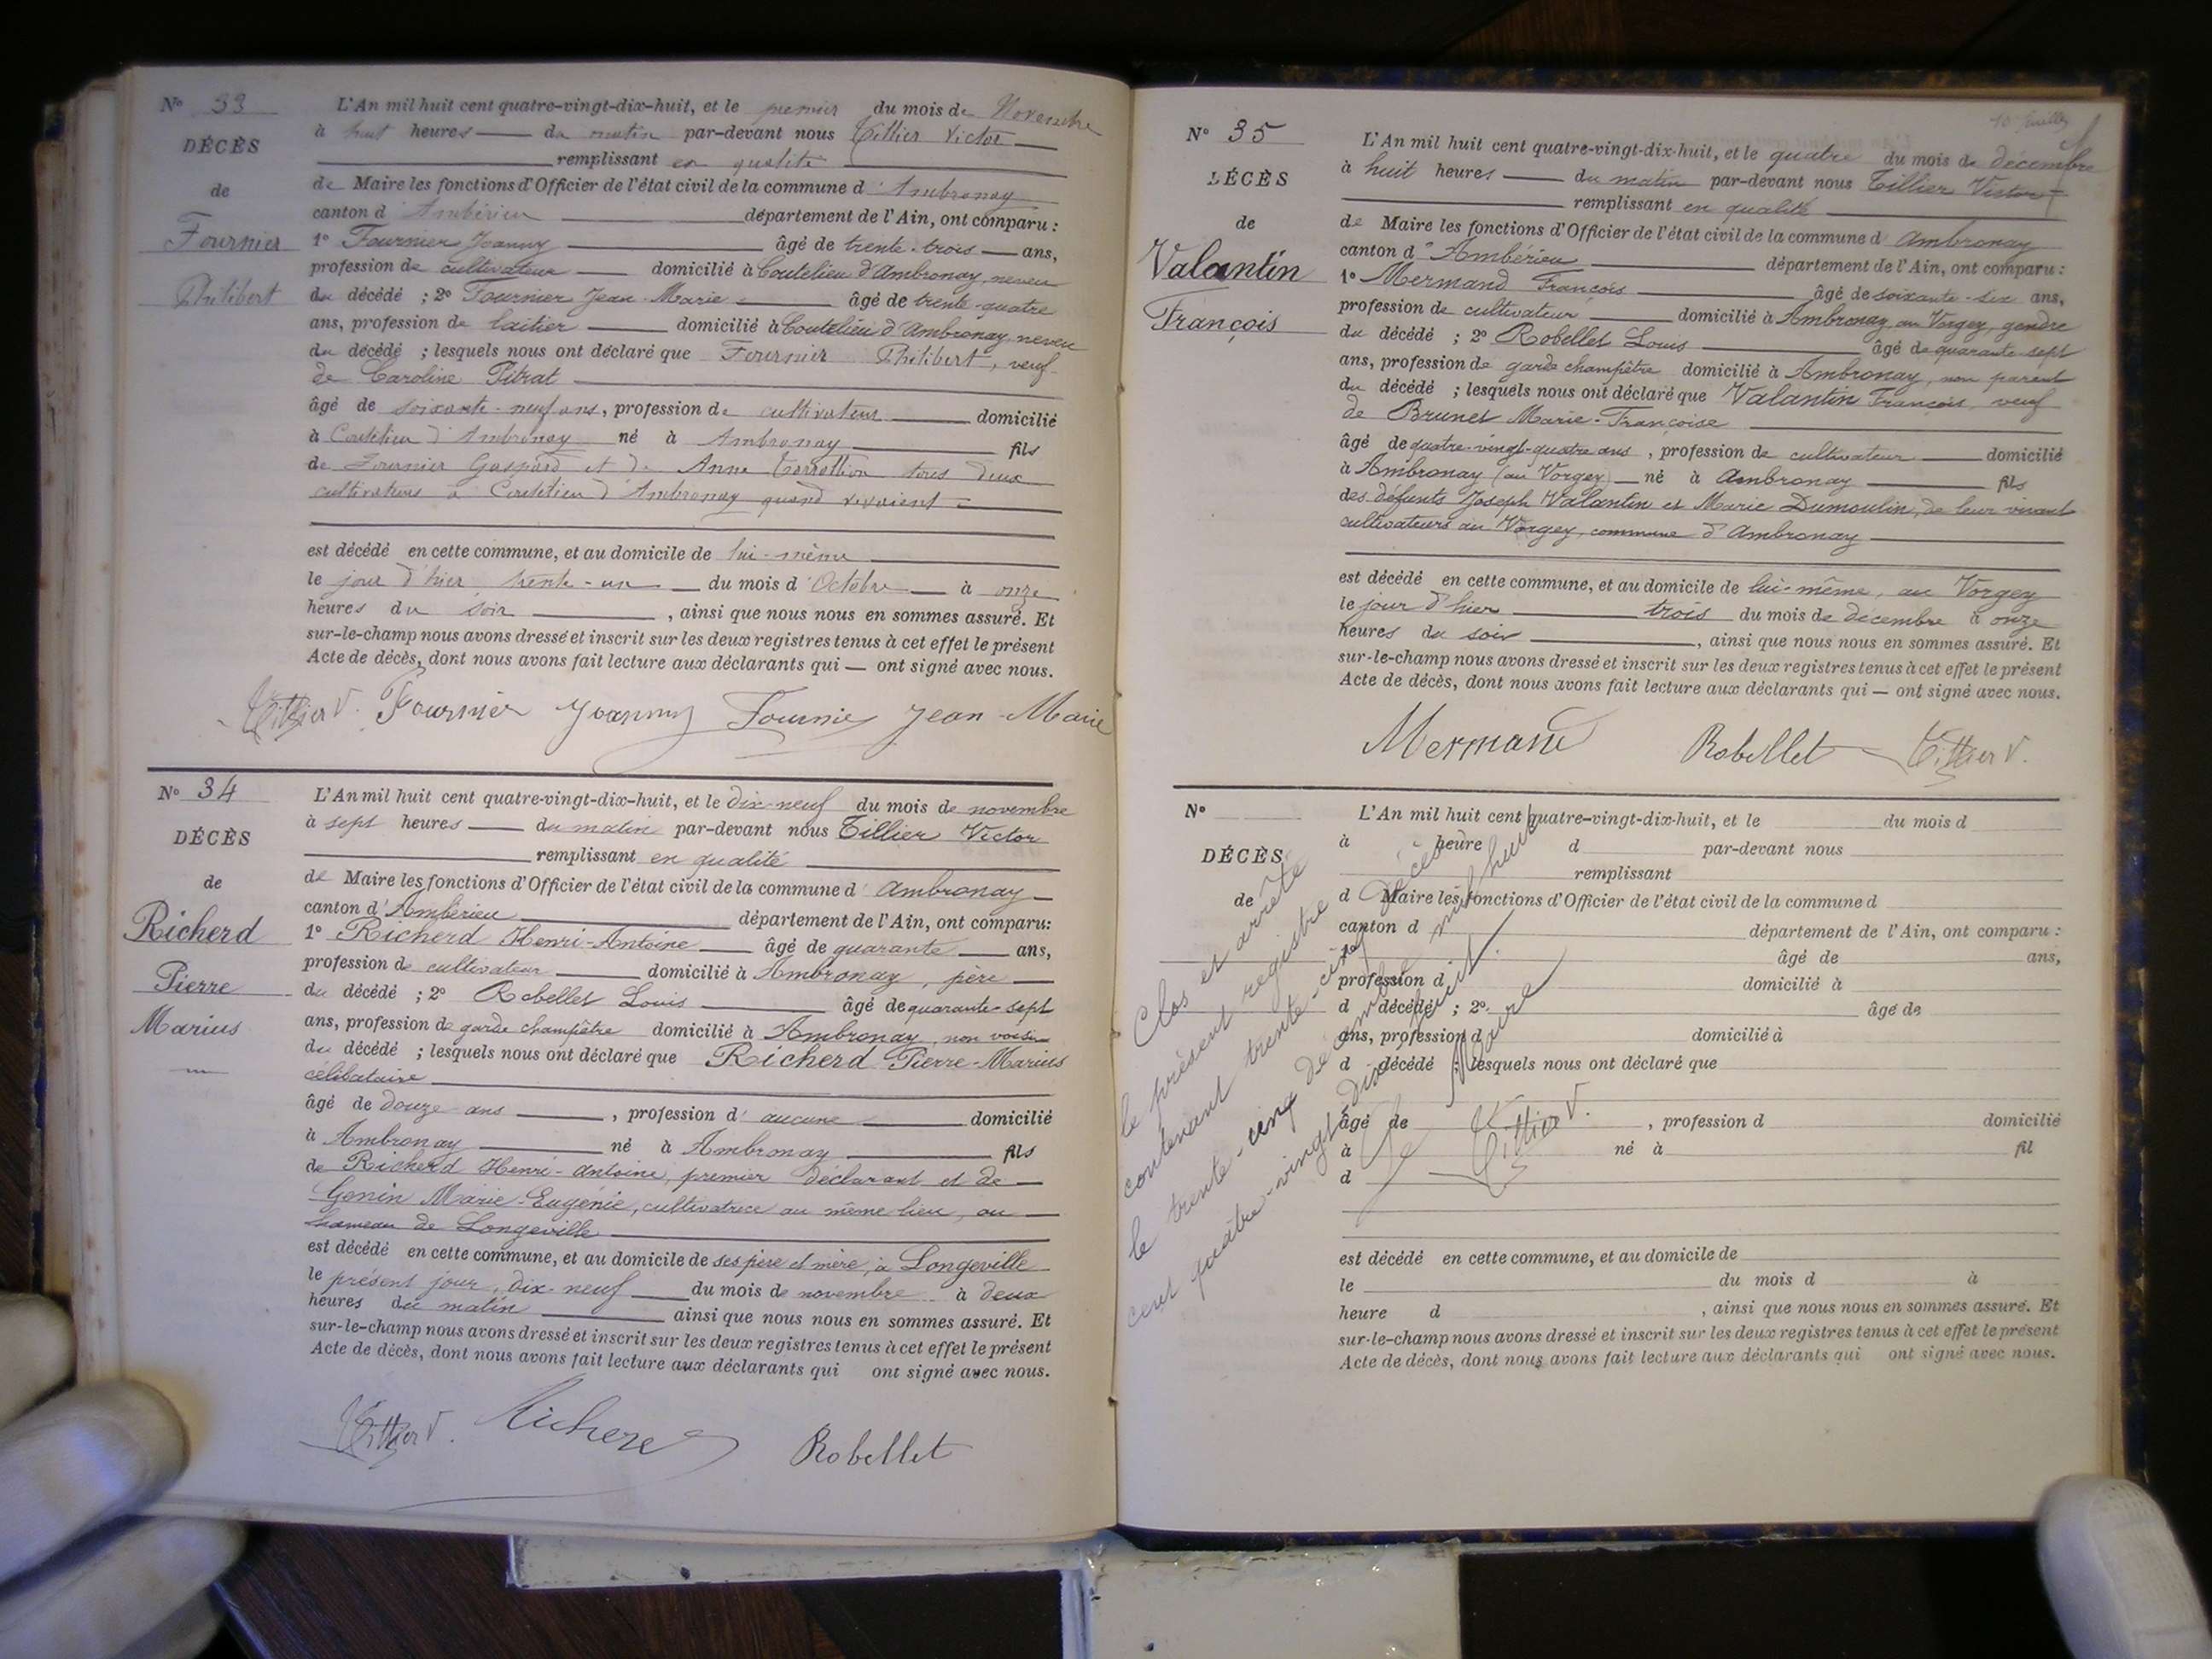 Nº 33
DÉCÈS
de
Fournier
Philibert
L'An mil huit cent quatre-vingt-dix-huit, et le premier du mois de Novembre
à huit heures du matin par-devant nous Tillier Victor
remplissant en qualité
de Maire les fonctions d'Officier de l'état civil de la commune d'Ambronay
canton d'Ambérieu département de l'Ain, ont comparu :
1º Fournier Joanny âgé de trente-trois ans,
profession de cultivateur domicilié à Coutelieu d'Ambronay, neveu
du décédé ; 2º Fournier Jean-Marie âgé de trente-quatre
ans, profession de laitier domicilié à Coutelieu d'Ambronay, neveu
du décédé ; lesquels nous ont déclaré que Fournier Philibert, veuf
de Caroline Pitrat
âgé de soixante-neuf ans, profession de cultivateur domicilié
à Coutelieu d'Ambronay né à Ambronay fils
de Fournier Gaspard et de Anne tous deux
cultivateurs à Coutelieu d'Ambronay quand vivaient
est décédé en cette commune, et au domicile de lui-même
le jour d'hier trente-un du mois d'Octobre à onze
heures du soir, ainsi que nous nous en sommes assuré. Et
sur-le-champ nous avons dressé et inscrit sur les deux registres tenus à cet effet le présent
Acte de décès, dont nous avons fait lecture aux déclarants qui — ont signé avec nous.
Tillier V. Fournier Joanny Fournier Jean-Marie
Nº 34
DÉCÈS
de
Richerd
Pierre
Marius
L'An mil huit cent quatre-vingt-dix-huit, et le dix-neuf du mois de novembre
à sept heures du matin par-devant nous Tillier Victor
remplissant en qualité
de Maire les fonctions d'Officier de l'état civil de la commune d'Ambronay
canton d'Ambérieu département de l'Ain, ont comparu:
1º Richerd Henri-Antoine âgé de quarante ans,
profession de cultivateur domicilié à Ambronay, père
du décédé ; 2º Robellet Louis âgé de quarante-sept
ans, profession de garde champêtre domicilié à Ambronay, non voisin
du décédé ; lesquels nous ont déclaré que Richerd Pierre-Marius
célibataire
âgé de douze ans, profession d'aucune domicilié
à Ambronay né à Ambronay fils
de Richerd Henri-Antoine, premier déclarant et de
Genin Marie-Eugenie, cultivatrice au même lieu, au
hameau de Longeville
est décédé en cette commune, et au domicile de ses père et mère, à Longeville
le présent jour, dix-neuf du mois de novembre à deux
heures du matin ainsi que nous nous en sommes assuré. Et
sur-le-champ nous avons dressé et inscrit sur les deux registres tenus à cet effet le présent
Acte de décès, dont nous avons fait lecture aux déclarants qui ont signé avec nous.
Tillier V. Richerd Robellet
Nº 35
DÉCÈS
de
Valantin
François
L'An mil huit cent quatre-vingt-dix-huit, et le quatre du mois de décembre
à huit heures du matin par-devant nous Tillier Victor
remplissant en qualité
de Maire les fonctions d'Officier de l'état civil de la commune d'Ambronay
canton d'Ambérieu département de l'Ain, ont comparu :
1º Mermand François âgé de soixante-six ans,
profession de cultivateur domicilié à Ambronay, au Vorgey, gendre
du décédé ; 2º Robellet Louis âgé de quarante-sept
ans, profession de garde champêtre domicilié à Ambronay, non parent
du décédé ; lesquels nous ont déclaré que Valantin François, veuf
de Brunet Marie-Françoise
âgé de quatre-vingt-quatre ans, profession de cultivateur domicilié
à Ambronay (au Vorgey) né à Ambronay fils
des défunts Joseph Valantin et Marie Dumoulin, de leur vivant
cultivateurs au Vorgey, commune d'Ambronay
est décédé en cette commune, et au domicile de lui-même, au Vorgey
le jour d'hier trois du mois de décembre à onze
heures du soir, ainsi que nous nous en sommes assuré. Et
sur-le-champ nous avons dressé et inscrit sur les deux registres tenus à cet effet le présent
Acte de décès, dont nous avons fait lecture aux déclarants qui — ont signé avec nous.
Mermand Robellet Tillier V.
Nº
DÉCÈS
de
L'An mil huit cent quatre-vingt-dix-huit, et le du mois d
à heure d par-devant nous
remplissant
d Maire les fonctions d'Officier de l'état civil de la commune d
canton d département de l'Ain, ont comparu :
âgé de ans,
profession d domicilié à
d décédé ; 2º âgé de
ans, profession d domicilié à
d décédé ; lesquels nous ont déclaré que
âgé de , profession d domicilié
à né à fil
d
est décédé en cette commune, et au domicile de
le du mois d à
heure d , ainsi que nous nous en sommes assuré. Et
sur-le-champ nous avons dressé et inscrit sur les deux registres tenus à cet effet le présent
Acte de décès, dont nous avons fait lecture aux déclarants qui ont signé avec nous.
Clos et arrêté
le présent registre
contenant trente-cinq décès
le trente-cinq décembre mil huit
cent quatre-vingt-dix-huit.
Le Maire
Tillier V.